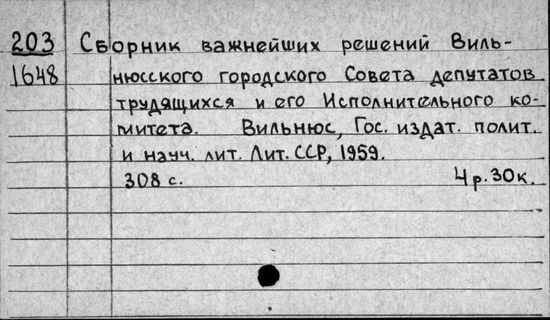 203 Сборник важнейших решений Виль-
1648 нюсского городского Совета депутатов
трудящихся и его Исполнительного ко-
митета. Вильнюс, Гос. издат. полит.
и науч. лит. Лит. ССР, 1959.
308 с. 4 р. 30 к.